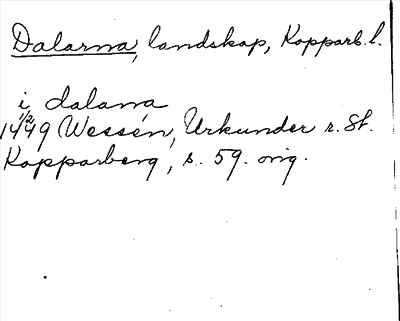 Dalarna, landskap, Kopparb. l.
i dalana
1/2 1449 Wessén, Urkunder r. St.
Kopparberg, s. 59. orig.